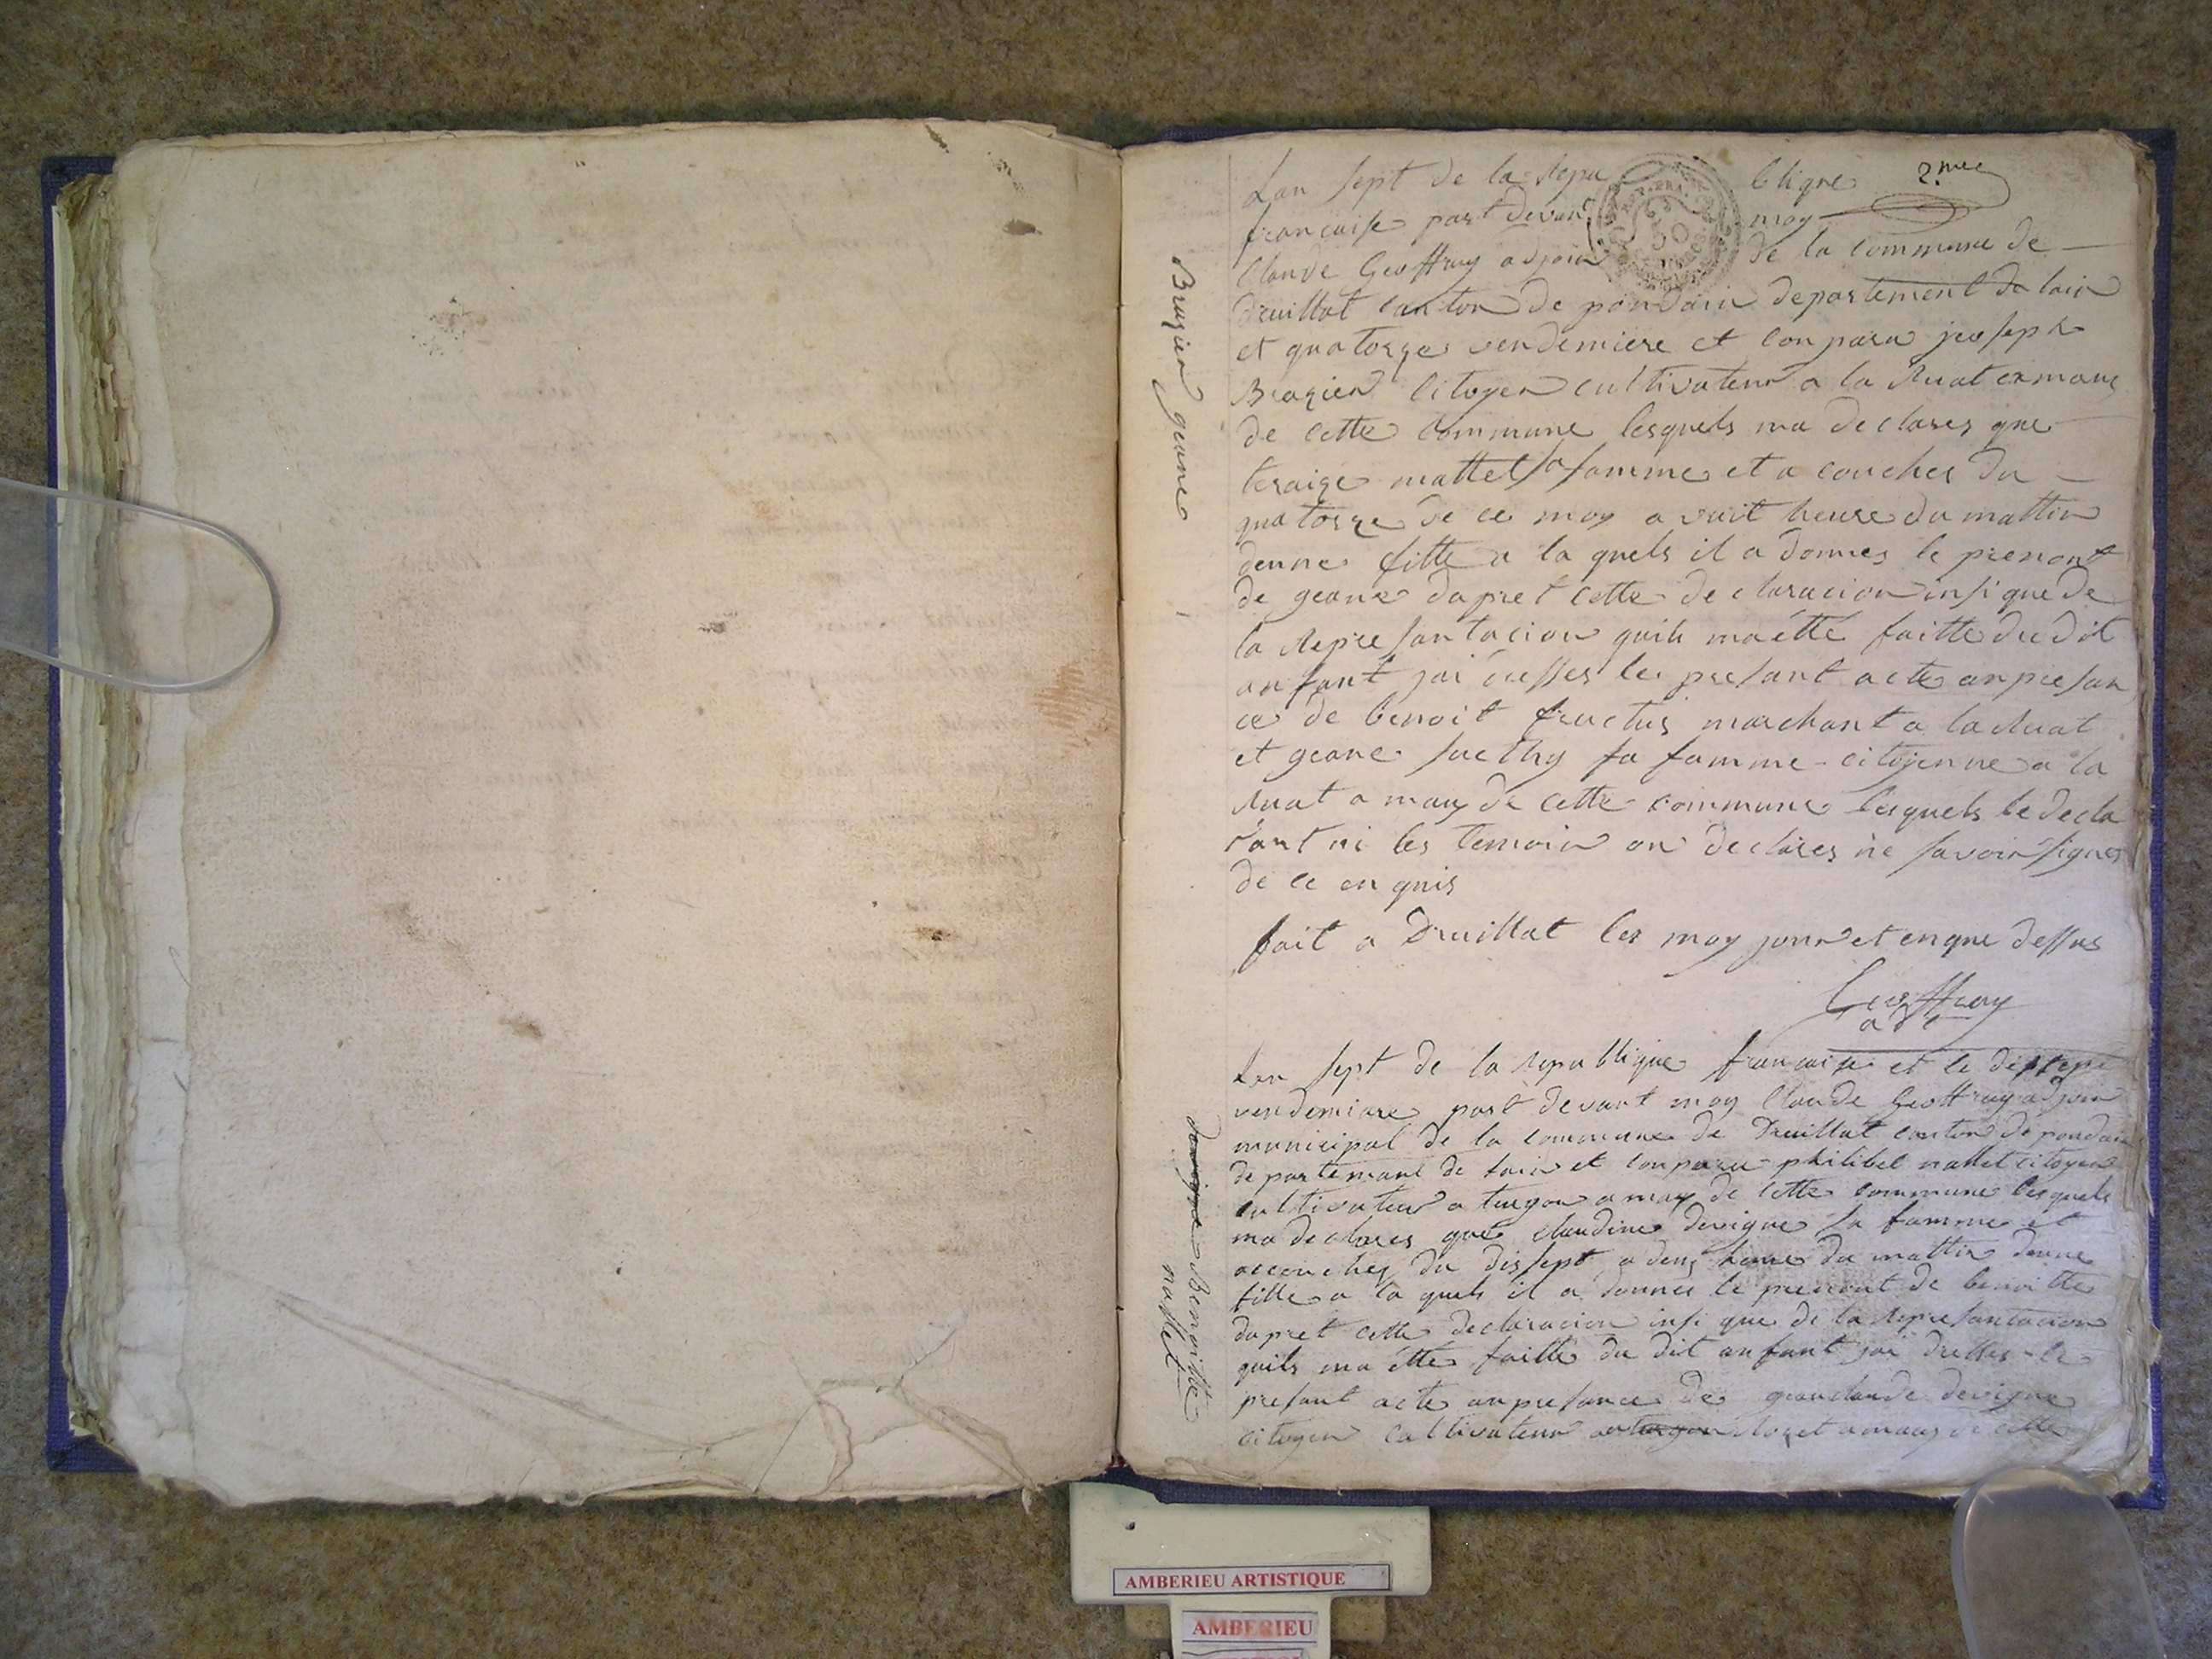 2.me
Lan sept de la Repu blique
francaise part devant moy
Claude Geoffray adjoin de la commune de
Druillat canton de pondain departement de lain
et quatorze vendemiere et conparu joseph
Brazier citoyen cultivateur a la Ruat
de cette commune lesquels ma declares que
mattel sa famme et a couches du
quatorze de ce moy a vuit heure du mattin
denne fille a la quels il a donnes le prenont
de geane dapret cette declaracion insi que de
la Represantacion quils ma étté faitte du dit
anfant jai dresses le presant acte anpresan
ce de benoit fructus marchant a la Ruat
et geane suethy sa famme citoyenne a la
Ruat a maux de cette commune lesquels le decla
rant ni les temoin on declares ne savoir signer
de ce en quis
fait a Druillat les moy jour et enque dessus
Geoffray
adt
Brazier geane
Lan sept de la republique francaise et le disept
vendemiare part devant moy Claude Geoffray adjoin
municipal de la commune de Druillat canton de pondain
departemant de lain et conparu philibet nallet citoyen
cultivateur a turgon a maux de cette commune lesquels
ma declares que claudine devigne sa famme et
accouchez du dissept a deux heure du mattin denne
fille a la quels il a donnes le prenont de benoitte
dapret cette declaracion insi que de la Represantacion
quils ma étté faitte du dit anfant jai dresses le
presant acte anpresance de geanclaude devigne
citoyen cultivateur a turgon a maux de cette
Benoitte
nallet
AMBERIEU ARTISTIQUE
AMBERIEU